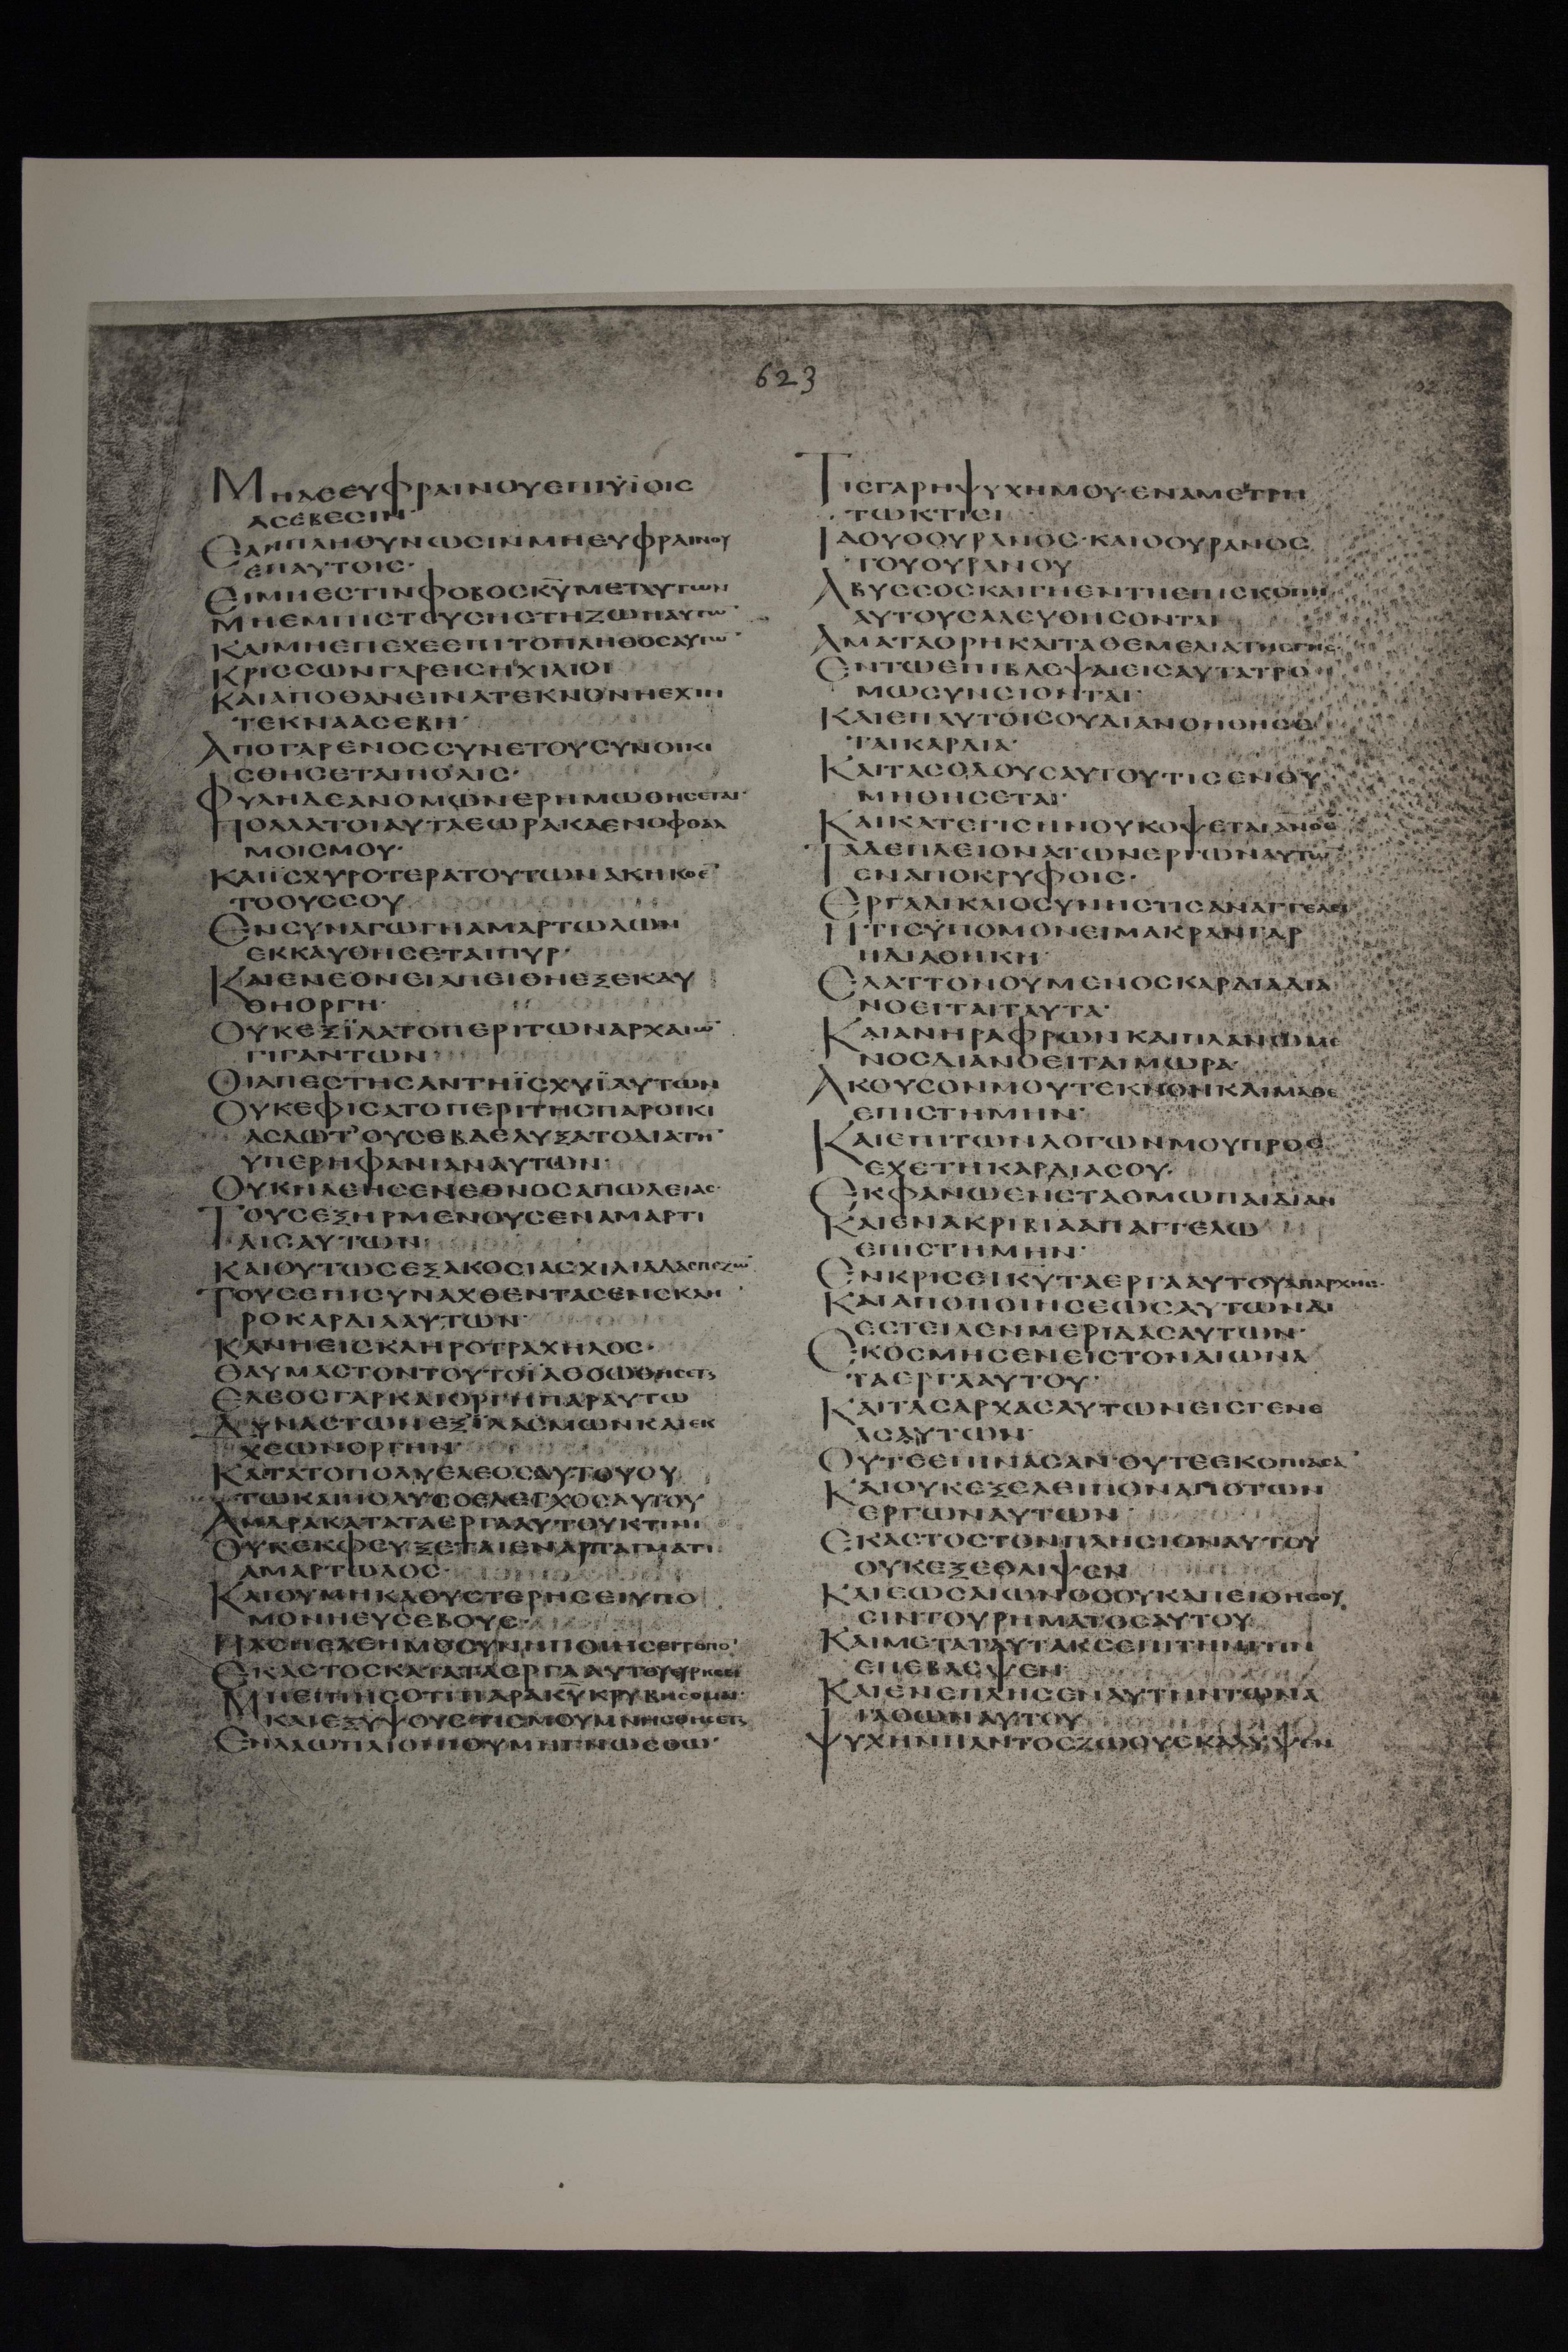 623
ΜΗΔΕΕΥΦΡΑΙΝΟΥΕΠΙΫΪΟΙC
ΑCΕΒΕCΙΝ·
ΕΑΝΠΛΗΘΥΝΩCΙΝΜΗΕΥΦΡΑΙΝΟΥ
ΕΠΑΥΤΟΙC·
ΕΙΜΗΕCΤΙΝΦΟΒΟCΚΥ̅ΜΕΤΑΥΤΩΝ
ΜΗΕΜΠΙCΤΕΥCΗCΤΗΖΩΗΑΥΤΩ̅
ΚΑΙΜΗΕΠΕΧΕΕΠΙΤΟΠΛΗΘΟCΑΥΤΩ̅
ΚΡΙCCΩΝΓΑΡΕΙCΗΧΙΛΙΟΙ
ΚΑΙΑΠΟΘΑΝΕΙΝΑΤΕΚΝΟΝΗΕΧΙΝ
ΤΕΚΝΑΑCΕΒΗ·
ΑΠΟΓΑΡΕΝΟCCΥΝΕΤΟΥCΥΝΟΙΚΙ
CΘΗCΕΤΑΙΠΟΛΙC·
ΦΥΛΗΔΕΑΝΟΜΩΝΕΡΗΜΩΘΗCΕΤΑΙ·
ΠΟΛΛΑΤΟΙΑΥΤΑΕΩΡΑΚΑΕΝΟΦΘΑΛ
ΜΟΙCΜΟΥ·
ΚΑΙΪCΧΥΡΟΤΕΡΑΤΟΥΤΩΝΑΚΗΚΟΕ̅
ΤΟΟΥCCΟΥ
ΕΝCΥΝΑΓΩΓΗΑΜΑΡΤΩΛΩΝ
ΕΚΚΑΥΘΗCΕΤΑΙΠΥΡ·
ΚΑΙΕΝΕΘΝΕΙΑΠΕΙΘΗΕΞΕΚΑΥ
ΘΗΟΡΓΗ·
ΟΥΚΕΞΪΛΑΤΟΠΕΡΙΤΩΝΑΡΧΑΙΩ̅
ΓΙΓΑΝΤΩΝ
ΟΙΑΠΕCΤΗCΑΝΤΗΪCΧΥΪΑΥΤΩΝ
ΟΥΚΕΦΙCΑΤΟΠΕΡΙΤΗCΠΑΡΟΙΚΙ
ΑCΛΩΤ'ΟΥCΕΒΔΕΛΥΞΑΤΟΔΙΑΤΗ̅
ΥΠΕΡΗΦΑΝΙΑΝΑΥΤΩΝ·
ΟΥΚΗΛΕΗCΕΝΕΘΝΟCΑΠΩΛΕΙΑC·
ΤΟΥCΕΞΗΡΜΕΝΟΥCΕΝΑΜΑΡΤΙ
ΑΙCΑΥΤΩΝ
ΚΑΙΟΥΤΩCΕΞΑΚΟCΙΑCΧΙΛΙΑΔΑCΠΕΖΩ̅
ΤΟΥCΕΠΙCΥΝΑΧΘΕΝΤΑCΕΝCΚΛΗ
ΡΟΚΑΡΔΙΑΑΥΤΩΝ·
ΚΑΝΗΕΙCΚΛΗΡΟΤΡΑΧΗΛΟC·
ΘΑΥΜΑCΤΟΝΤΟΥΤΟΪΑΘΩΩΘΗCΕΤΑΙ
ΕΛΕΟCΓΑΡΚΑΙΟΡΓΗΠΑΡΑΥΤΩ
ΔΥΝΑCΤΩΝΕΞΪΛΑCΜΩΝΚΑΙΕΚ
ΧΕΩΝΟΡΓΗΝ·
ΚΑΤΑΤΟΠΟΛΥΕΛΕΟCΑΥΤΟΥΟΥ
ΤΩΚΑΙΠΟΛΥCΟΕΛΕΓΧΟCΑΥΤΟΥ
ΑΝΔΡΑΚΑΤΑΤΑΕΡΓΑΑΥΤΟΥΚΡΙΝΙ
ΟΥΚΕΚΦΕΥΞΕΤΑΙΕΝΑΡΠΑΓΜΑΤΙ
ΑΜΑΡΤΩΛΟC·
ΚΑΙΟΥΜΗΚΑΘΥCΤΕΡΗCΕΙΥΠΟ
ΜΟΝΗΕΥCΕΒΟΥC·
ΠΑCΗΕΛΕΗΜΟCΥΝΗΠΟΙΗCΕΙΤΟΠΟ̅
ΕΚΑCΤΟCΚΑΤΑΤΑΕΡΓΑΑΥΤΟΥΕΥΡΗCΕΙ
ΜΗΕΙΠΗCΟΤΙΠΑΡΑΚΥ̅ΚΡΥΒΗCΟΜΑΙ·
ΚΑΙΕΞΥΨΟΥCΤΙCΜΟΥΜΝΗCΘΗCΕΤΑΙ
ΕΝΛΑΩΠΛΙΟΝΙΟΥΜΗΓΝΩCΘΩ·
ΤΙCΓΑΡΗΨΥΧΗΜΟΥ·ΕΝΑΜΕΤΡΗ
ΤΩΚΤΙCΙ
ΙΔΟΥΟΟΥΡΑΝΟC·ΚΑΙΟΟΥΡΑΝΟC
ΤΟΥΟΥΡΑΝΟΥ
ΑΒΥCCΟCΚΑΙΓΗΕΝΤΗΕΠΙCΚΟΠΗ
ΑΥΤΟΥCΑΛΕΥΘΗCΟΝΤΑΙ
ΑΜΑΤΑΟΡΗΚΑΙΤΑΘΕΜΕΛΙΑΤΗCΓΗC·
ΕΝΤΩΕΠΙΒΛΕΨΑΙΕΙCΑΥΤΑΤΡΟ
ΜΩCΥΝCΙΟΝΤΑΙ·
ΚΑΙΕΠΑΥΤΟΙCΟΥΔΙΑΝΟΗΘΗCΕ
ΤΑΙΚΑΡΔΙΑ·
ΚΑΙΤΑCΟΔΟΥCΑΥΤΟΥΤΙCΕΝΘΥ
ΜΗΘΗCΕΤΑΙ·
ΚΑΙΚΑΤΕΓΙCΗΝΟΥΚΟΨΕΤΑΙΑΝΟC
ΤΑΔΕΠΛΕΙΟΝΑΤΩΝΕΡΓΩΝΑΥΤΟΥ
ΕΝΑΠΟΚΡΥΦΟΙC·
ΕΡΓΑΔΙΚΑΙΟCΥΝΗCΤΙCΑΝΑΓΓΕΛΕΙ
ΗΤΙCΫΠΟΜΟΝΕΙΜΑΚΡΑΝΓΑΡ
ΗΔΙΑΘΗΚΗ·
ΕΛΑΤΤΟΝΟΥΜΕΝΟCΚΑΡΔΙΑΔΙΑ
ΝΟΕΙΤΑΙΤΑΥΤΑ·
ΚΑΙΑΝΗΡΑΦΡΩΝΚΑΙΠΛΑΝΩΜΕ
ΝΟCΔΙΑΝΟΕΙΤΑΙΜΩΡΑ·
ΑΚΟΥCΟΝΜΟΥΤΕΚΝΟΝΚΑΙΜΑΘΕ
ΕΠΙCΤΗΜΗΝ·
ΚΑΙΕΠΙΤΩΝΛΟΓΩΝΜΟΥΠΡΟC
ΕΧΕΤΗΚΑΡΔΙΑCΟΥ·
ΕΚΦΑΝΩΕΝCΤΑΘΜΩΠΑΙΔΙΑΝ
ΚΑΙΕΝΑΚΡΙΒΙΑΑΠΑΓΓΕΛΩ
ΕΠΙCΤΗΜΗΝ·
ΕΝΚΡΙCΕΙΚΥ̅ΤΑΕΡΓΑΑΥΤΟΥΑΠΑΡΧΗC·
ΚΑΙΑΠΟΠΟΙΗCΕΩCΑΥΤΩΝΔΙ
ΕCΤΕΙΛΕΝΜΕΡΙΔΑCΑΥΤΩΝ·
ΕΚΟCΜΗCΕΝΕΙCΤΟΝΑΙΩΝΑ
ΤΑΕΡΓΑΑΥΤΟΥ·
ΚΑΙΤΑCΑΡΧΑCΑΥΤΩΝΕΙCΓΕΝΕ
ΑCΑΥΤΩΝ·
ΟΥΤΕΕΠΙΝΑCΑΝ·ΟΥΤΕΕΚΟΠΙΑCΑ̅
ΚΑΙΟΥΚΕΞΕΛΕΙΠΟΝΑΠΟΤΩΝ
ΕΡΓΩΝΑΥΤΩΝ
ΕΚΑCΤΟCΤΟΝΠΛΗCΙΟΝΑΥΤΟΥ
ΟΥΚΕΞΕΘΛΙΨΕΝ
ΚΑΙΕΩCΑΙΩΝΟCΟΥΚΑΠΕΙΘΗCΟΥ
CΙΝΤΟΥΡΗΜΑΤΟCΑΥΤΟΥ
ΚΑΙΜΕΤΑΤΑΥΤΑΚCΕΠΙΤΗΝΓΗΝ
ΕΠΕΒΛΕΨΕΝ
ΚΑΙΕΝΕΠΛΗCΕΝΑΥΤΗΝΤΩΝΑ
ΓΑΘΩΝΑΥΤΟΥ
ΨΥΧΗΝΠΑΝΤΟCΖΩΟΥΕΚΑΛΥΨΕΝ